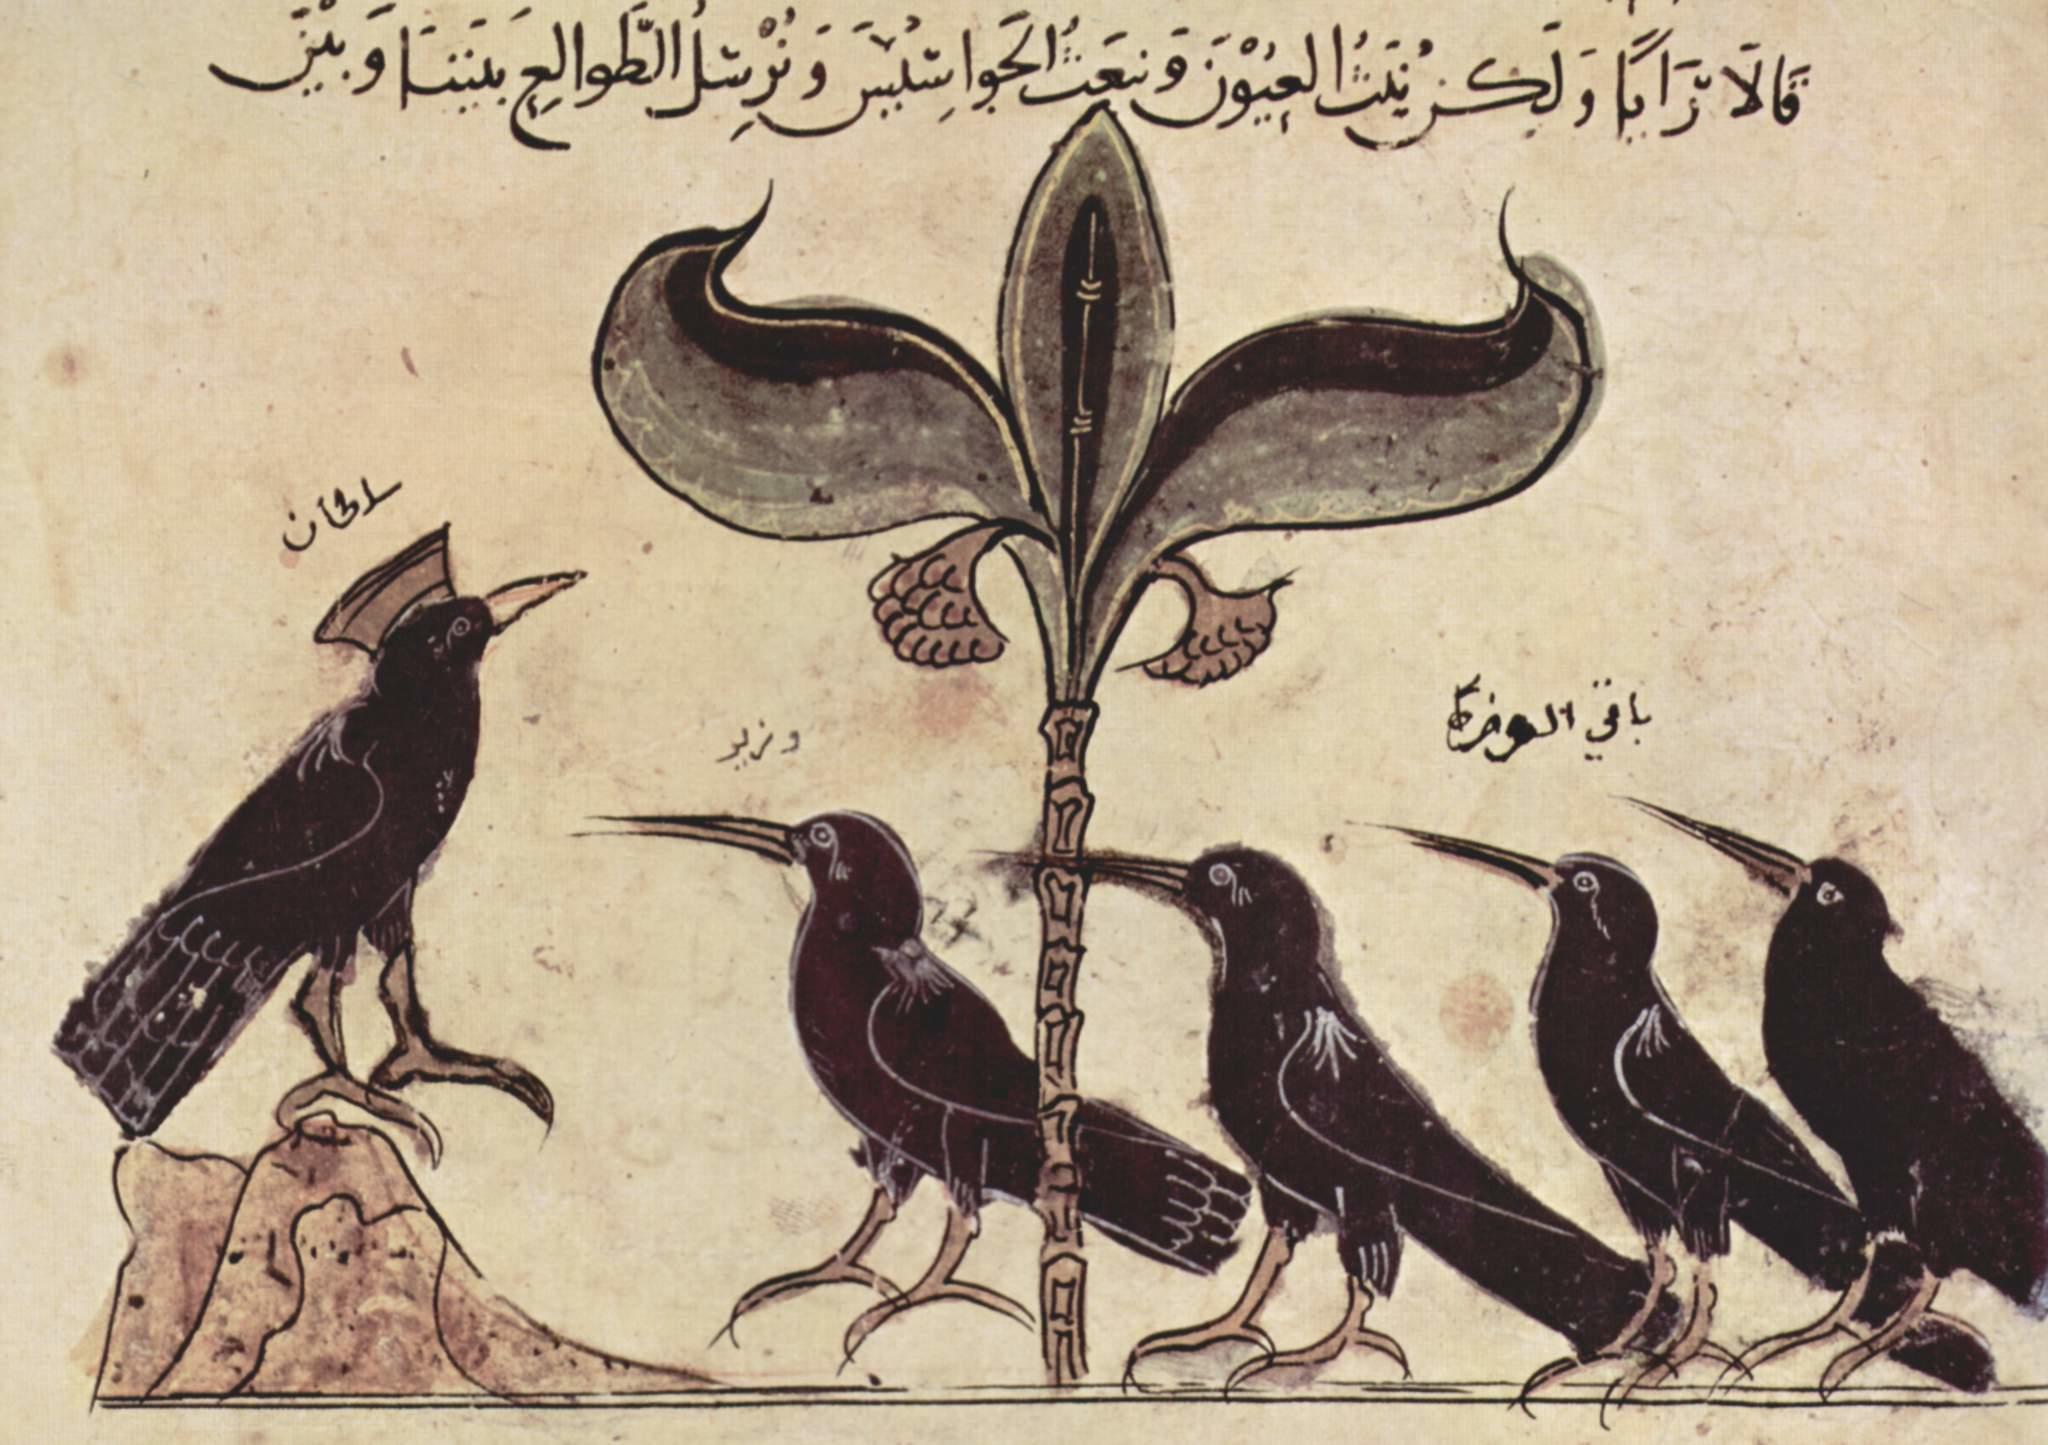 قَالَا رَايًا وَلَكن نَبثُ العُيُوْنَ وَنبعَثُ الجَواسِيْسَ وَنُرْسِلُ الطَّوالِعِ بَيننَا وَبيْنَ
سلطان
باقي الوزرا
وزير